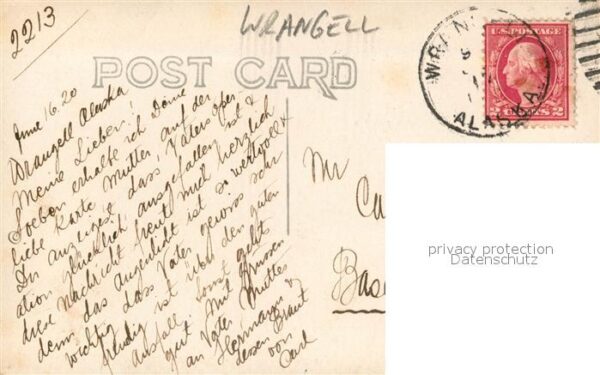 2213
WRANGELL
POST CARD
WRAN
ALASKA
U.S. POSTAGE
2 CENTS 2
June 16. 20
Wrangell Alaska
Meine Lieben!
Soeben erhalte ich Deine
liebe Karte Mutter, auf der
Du anzeigest dass, Vaters oper-
ation glücklich ausgefallen ist &
diese Nachricht freut mich herzlich
denn das augenlicht ist so wertvoll &
wichtig dass Vater gewiss sehr
freudig ist über den guten
Ausfall. Sonst gehts
gut. Mit Grüssen
an Vater Mutter
Hermann &
dessen Braut
von
Carl
Mr
Ca
Bas
privacy protection
Datenschutz